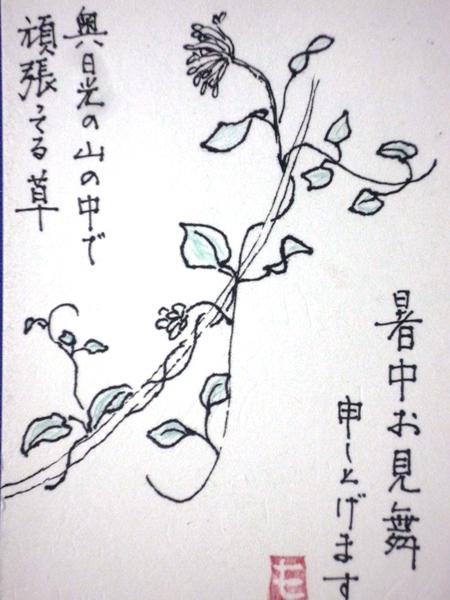 暑中お見舞
申し上げます
奥日光の山の中で
頑張ってる草